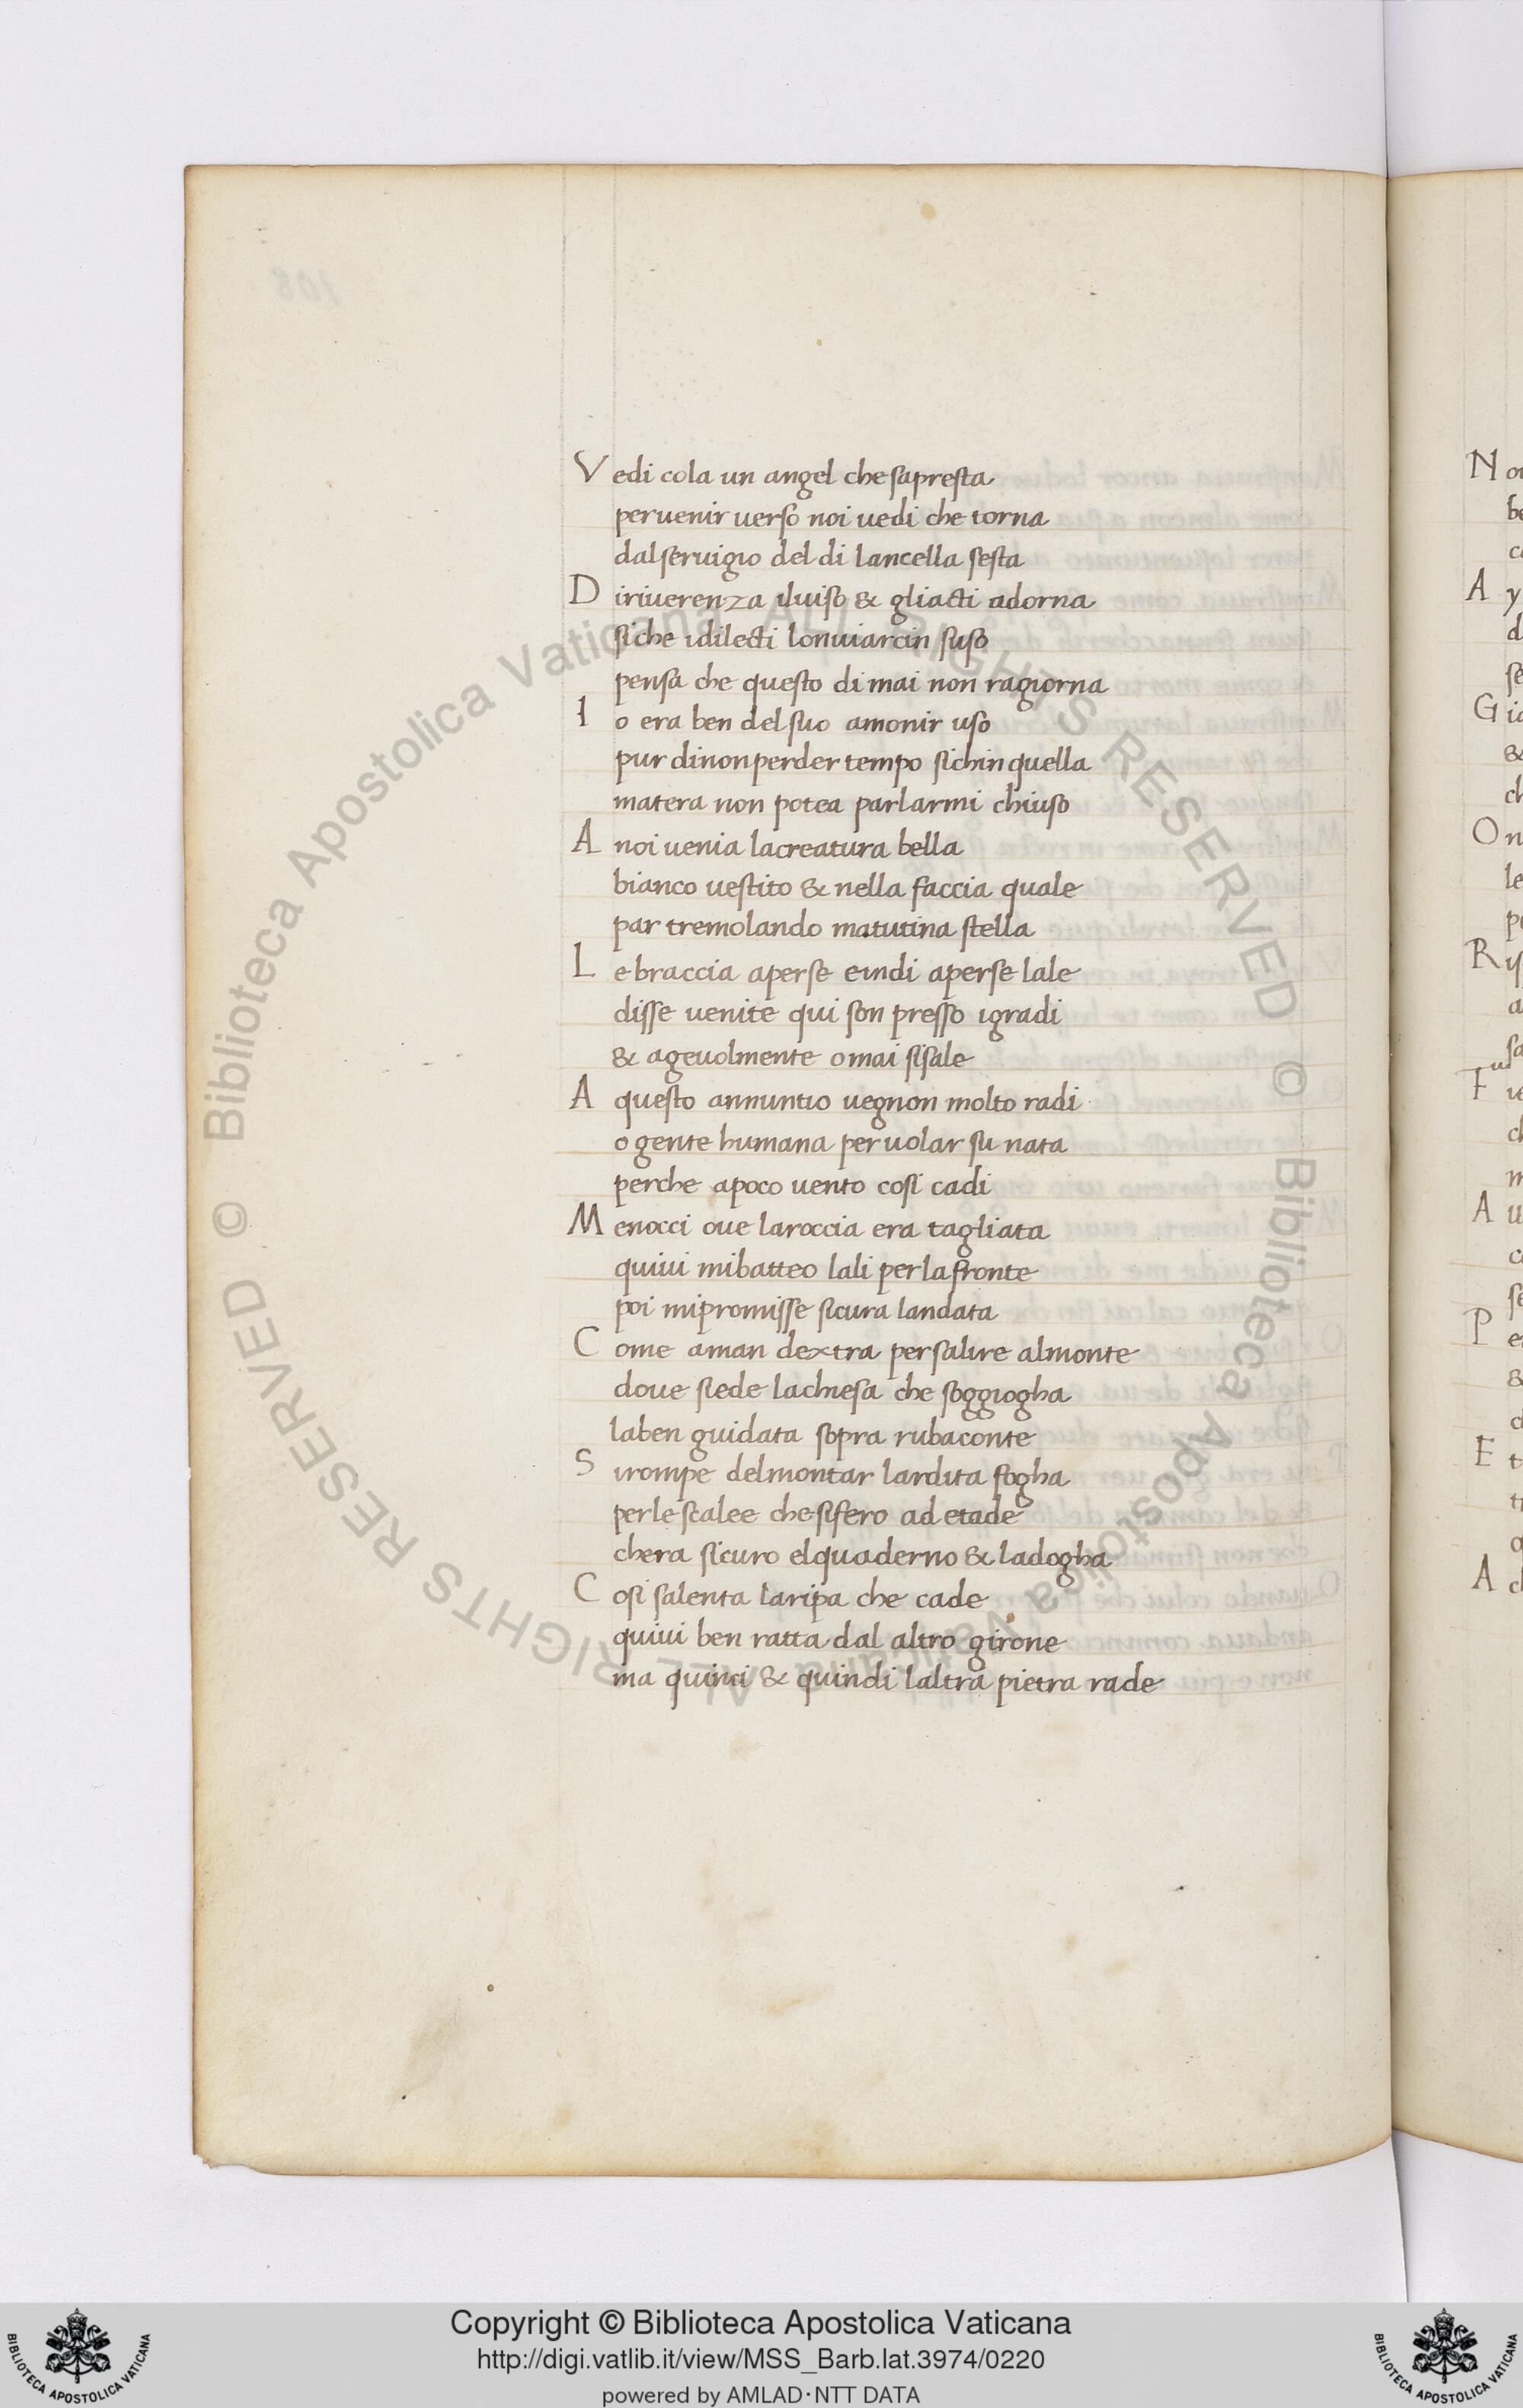 Vedi cola un angel che sapresta
per uenir uerso noi uedi che torna
dal seruigio del di lancella sesta
Di riuerenza iluiso & gliacti adorna
siche idilecti lonuiarcin suso
pensa che questo di mai non ragiorna
Io era ben del suo amonir uso
pur dinonperder tempo sichin quella
matera non potea parlarmi chiuso
A noi uenia lacreatura bella
bianco uestito & nella faccia quale
par tremolando matutina stella
Le braccia aperse eindi aperse lale
disse uenite qui son presso igradi
& ageuolmente omai sisale
A questo annuntio uegnon molto radi
o gente humana per uolar su nata
perche apoco uento cosi cadi
Menocci oue laroccia era tagliata
quiui mibatteo lali perlafronte
poi mipromisse sicura landata
Come aman dextra per salire almonte
doue siede lachiesa che soggiogha
laben guidata sopra rubaconte
Si rompe delmontar lardita fogha
perle scalee che sifero ad etade
chera sicuro elquaderno & ladogha
Cosi salenta laripa che cade
quiui ben ratta dal altro girone
ma quinci & quindi laltra pietra rade
Copyright © Biblioteca Apostolica Vaticana
http://digi.vatlib.it/view/MSS_Barb.lat.3974/0220
powered by AMLAD·NTT DATA
BIBLIOTECA APOSTOLICA VATICANA
BIBLIOTECA APOSTOLICA VATICANA
© Biblioteca Apostolica Vaticana ALL RIGHTS RESERVED © Biblioteca Apostolica Vaticana ALL RIGHTS RESERVED